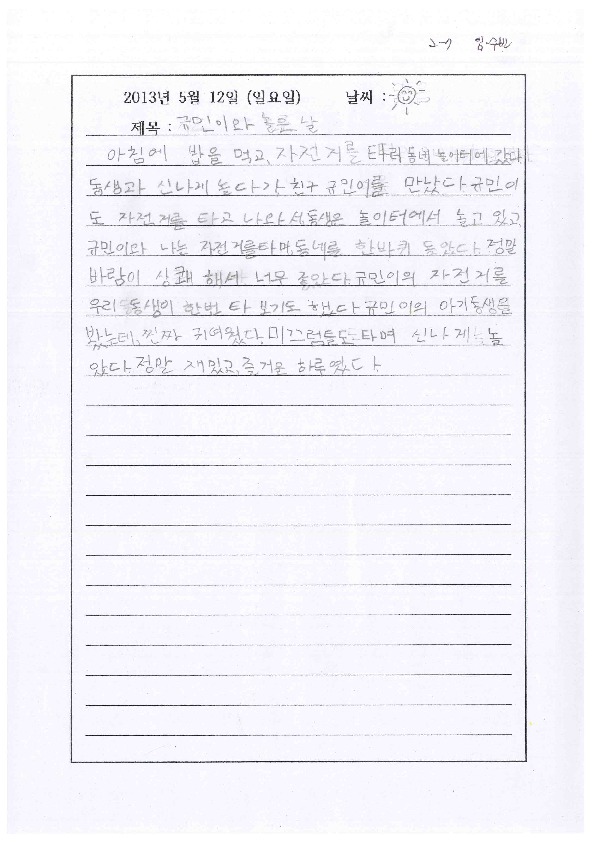 2-7 임수빈
2013년 5월 12일 (일요일) 날씨 :
제목 : 규민이와 놀은 날
아침에 밥을 먹고, 자전거를 타러 동네 놀이터에 갔다.
동생과 신나게 놀다가 친구 규민이를 만났다. 규민이
도 자전거를 타고 나와서, 동생은 놀이터에서 놀고 있고,
규민이와 나는 자전거를 타며, 동네를 한바퀴 돌았다. 정말
바람이 상쾌 해서 너무 좋았다. 규민이의 자전거를
우리 동생이 한번 타 보기도 했다. 규민이의 아기동생을
봤는데, 진짜 귀여웠다. 미끄럼틀도 타며 신나게 놀
았다. 정말 재밌고, 즐거운 하루였다.